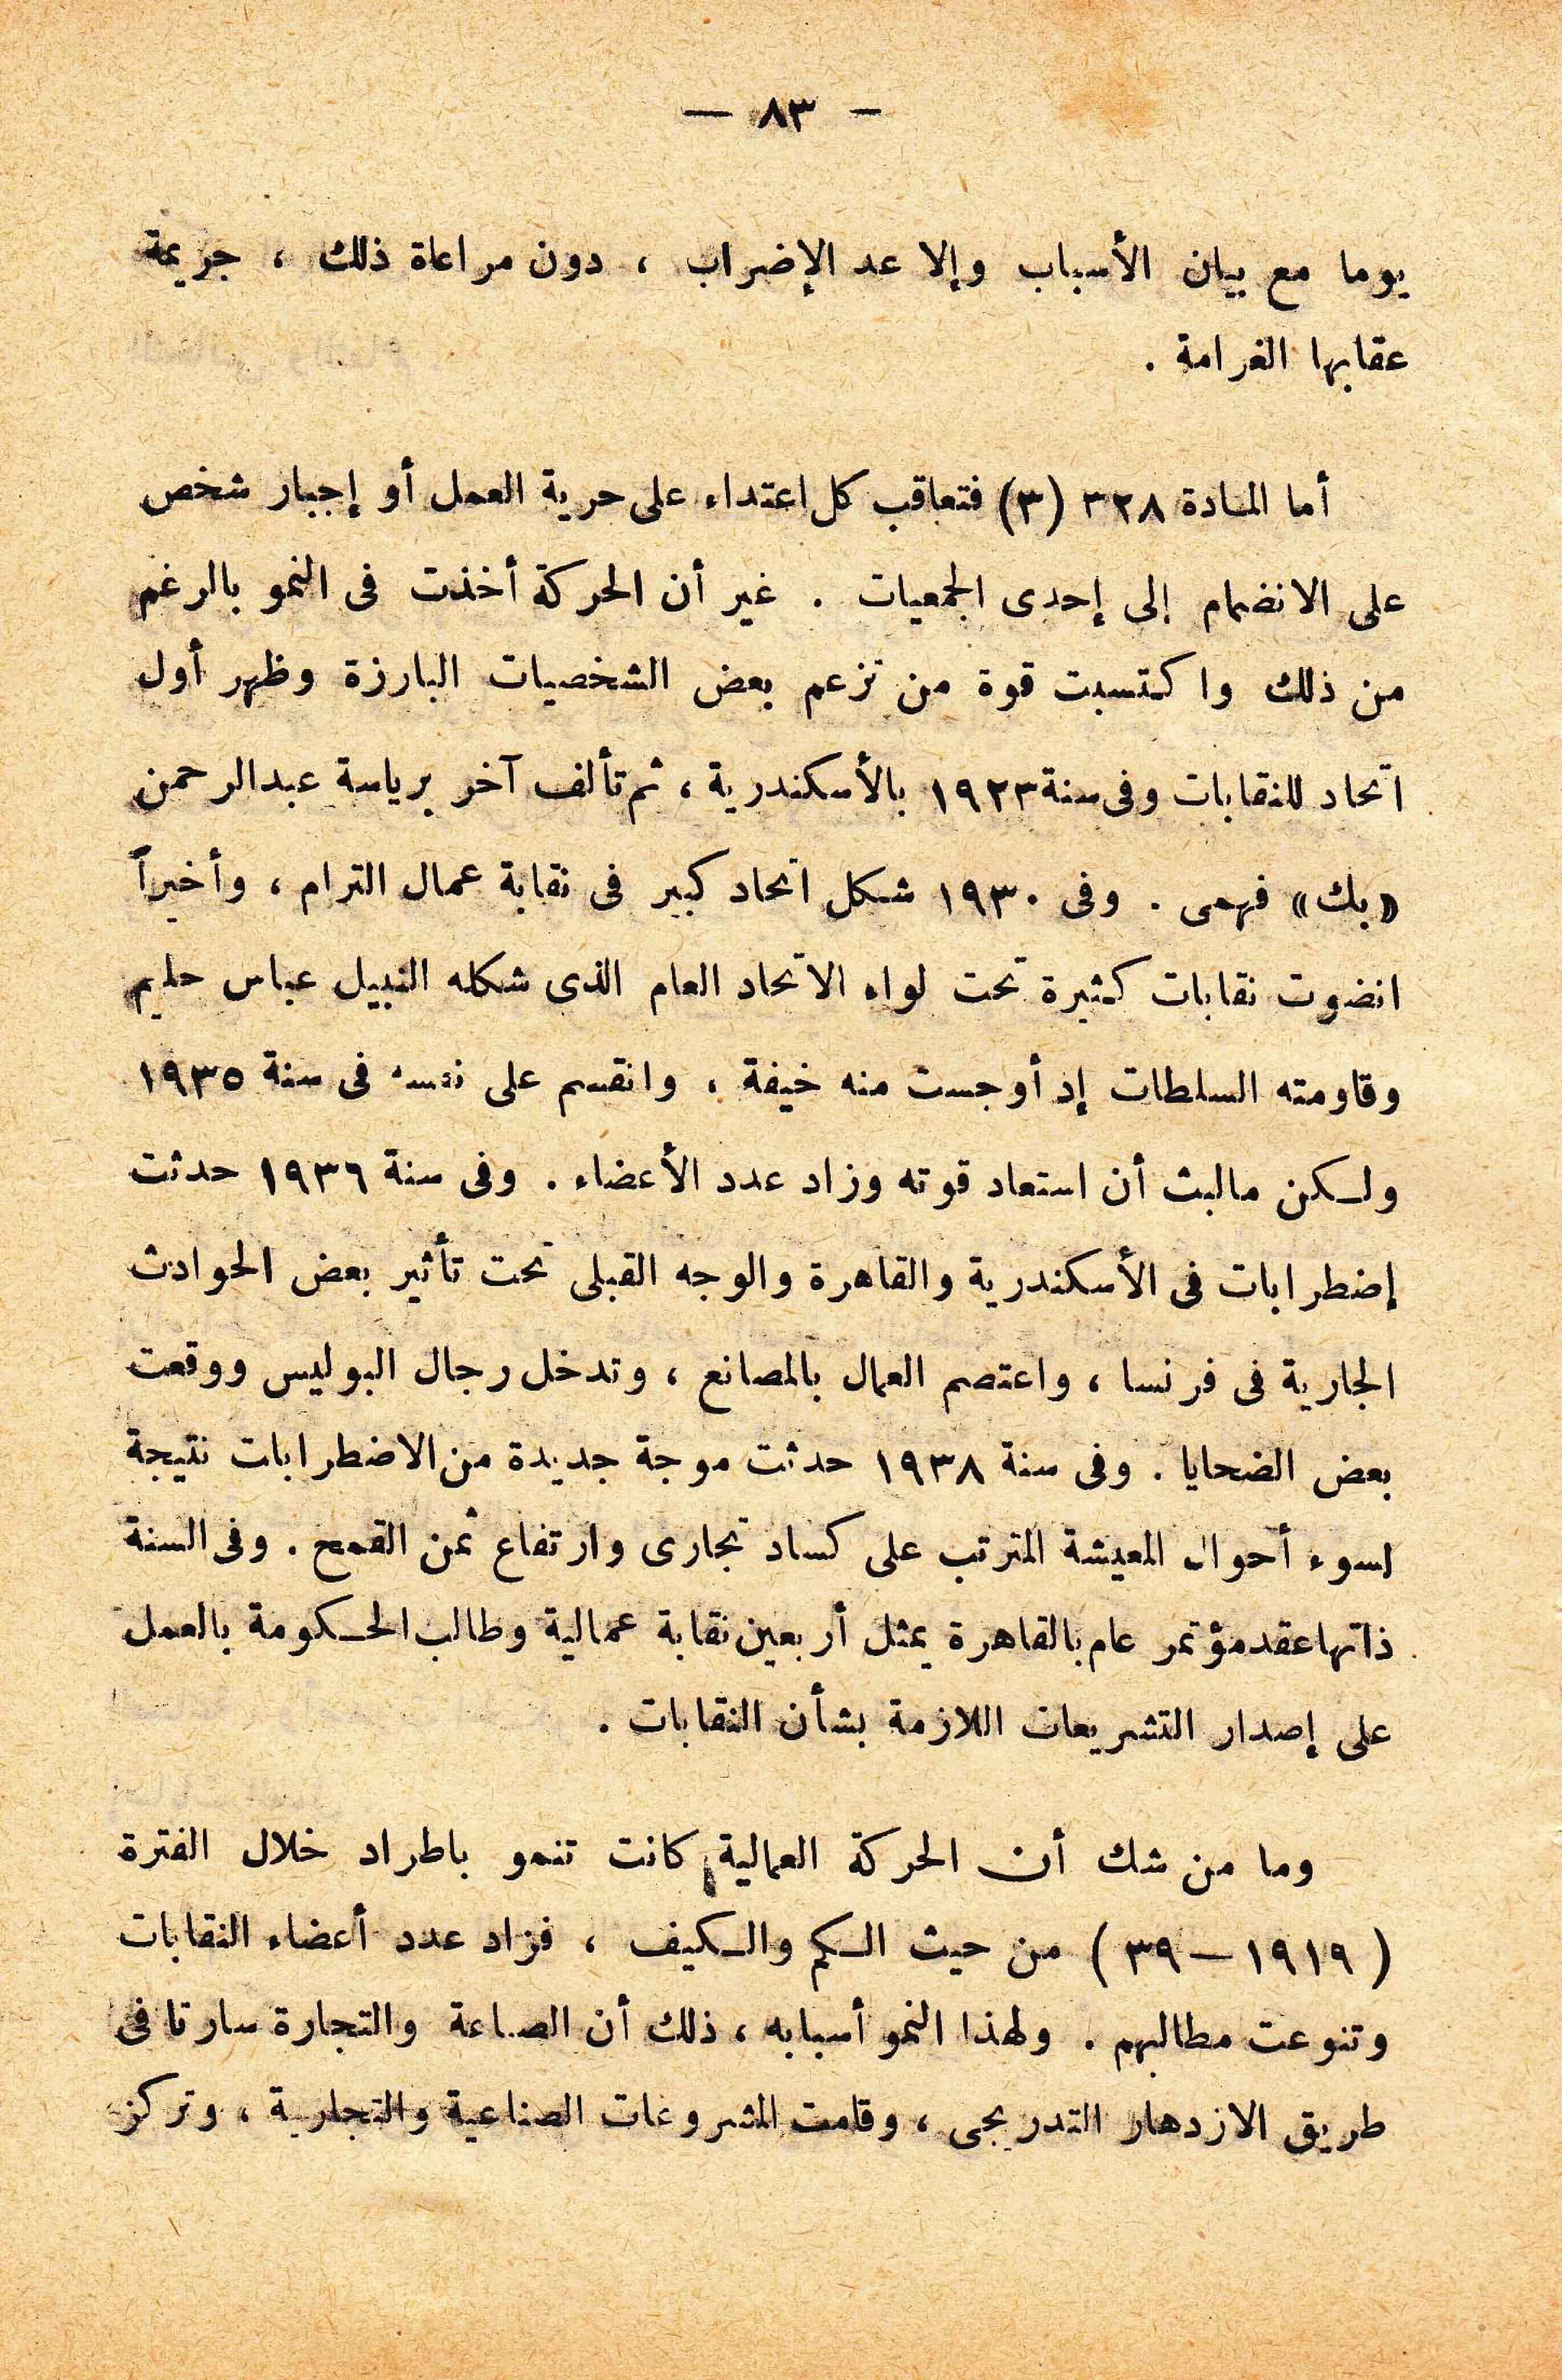 — ٨٣ —
يوما مع بيان الأسباب وإلا عد الإضراب ، دون مراعاة ذلك ، جريمة
عقابها الغرامة .
أما المادة ٣٢٨ (٣) فتعاقب كل اعتداء على حرية العمل أو إجبار شخص
على الانضمام إلى إحدى الجمعيات . غير أن الحركة أخذت فى النمو بالرغم
من ذلك واكتسبت قوة من تزعم بعض الشخصيات البارزة وظهر أول
اتحاد للنقابات وفى سنة ١٩٢٣ بالأسكندرية ، ثم تألف آخر برياسة عبد الرحمن
« بك » فهمى . وفى ١٩٣٠ شكل اتحاد كبير فى نقابة عمال الترام ، وأخيراً
انضوت نقابات كثيرة تحت لواء الاتحاد العام الذى شكله النبيل عباس حليم
وقاومته السلطات إذ أوجست منه خيفة ، وانقسم على نفسه فى سنة ١٩٣٥
ولكن مالبث أن استعاد قوته وزاد عدد الأعضاء . وفى سنة ١٩٣٦ حدثت
إضطرابات فى الأسكندرية والقاهرة والوجه القبلى تحت تأثير بعض الحوادث
الجارية فى فرنسا ، واعتصم العمال بالمصانع ، وتدخل رجال البوليس ووقعت
بعض الضحايا . وفى سنة ١٩٣٨ حدثت موجة جديدة من الاضطرابات نتيجة
لسوء أحوال المعيشة المترتب على كساد تجارى وارتفاع ثمن القمح . وفى السنة
ذاتها عقد مؤتمر عام بالقاهرة يمثل أربعين نقابة عمالية وطالب الحكومة بالعمل
على إصدار التشريعات اللازمة بشأن النقابات .
وما من شك أن الحركة العمالية كانت تنمو باطراد خلال الفترة
( ١٩١٩ — ٣٩ ) من حيث الكم والكيف ، فزاد عدد أعضاء النقابات
وتنوعت مطالبهم . ولهذا النمو أسبابه ، ذلك أن الصناعة والتجارة سارتا فى
طريق الازدهار التدريجى ، وقامت المشروعات الصناعية والتجارية ، وتركز